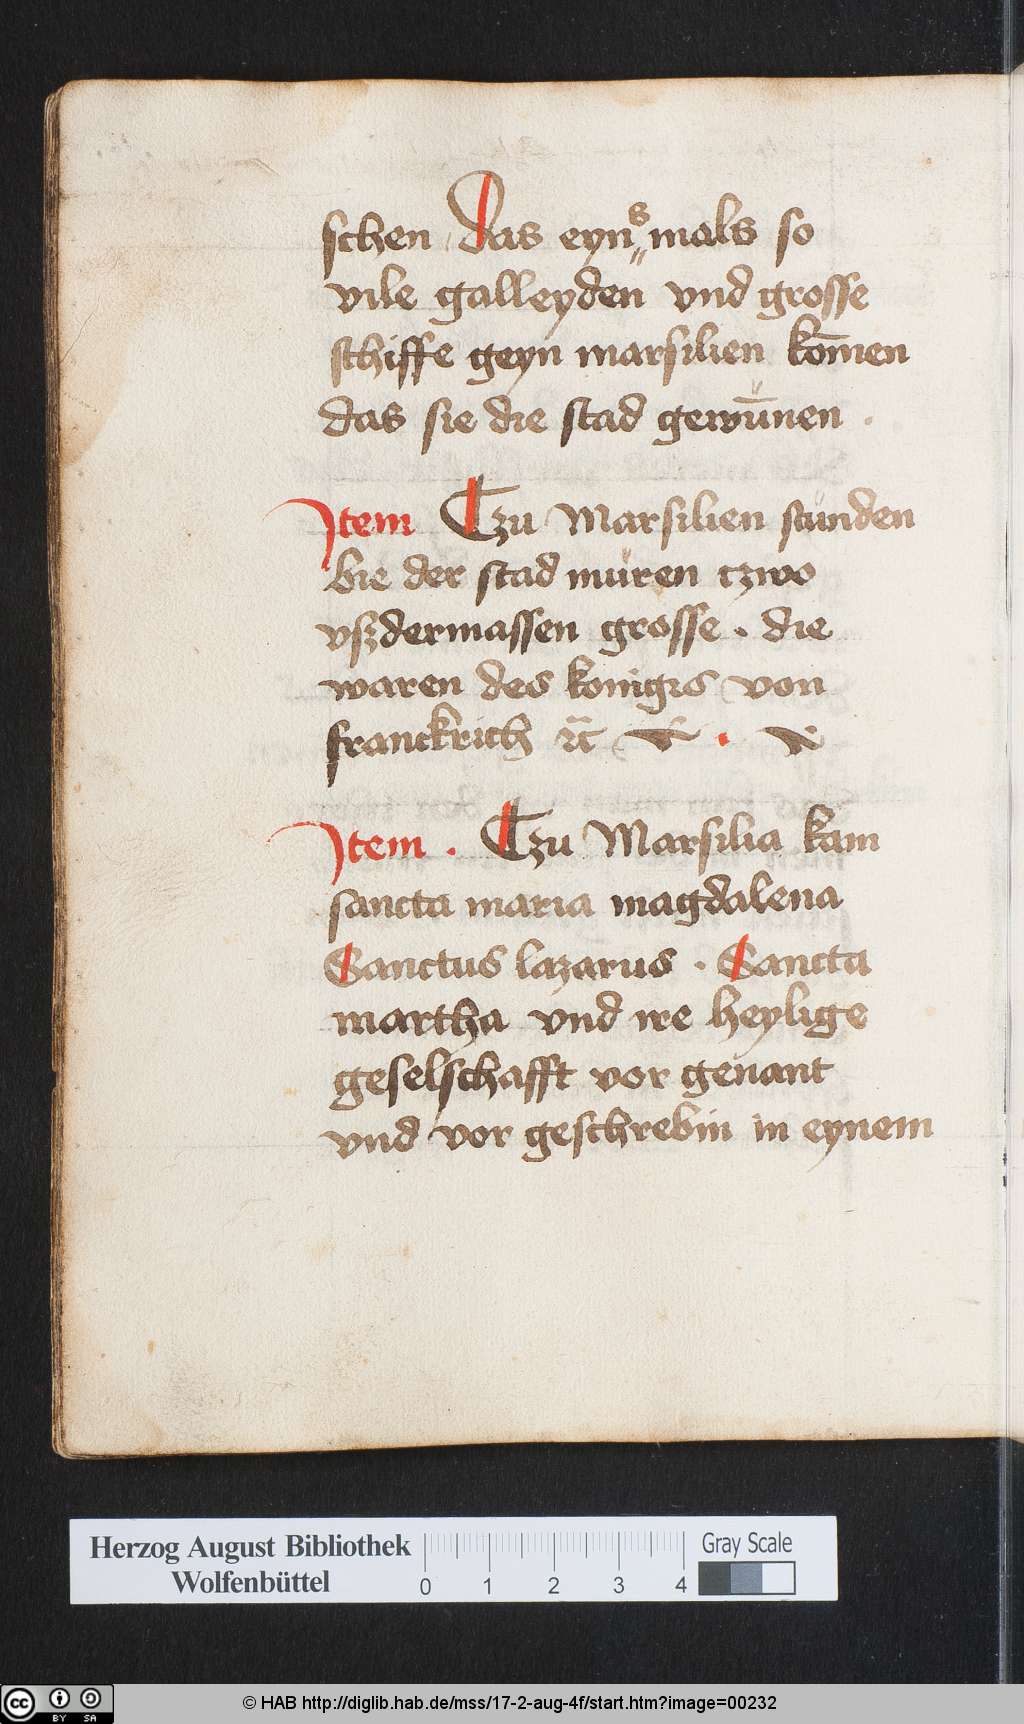 schen Das eynsmals so
vile galleyden vnd grosse
schiffe geyn marsilien kom̄en
das sie die stad gewūnen .
Item Tzu Marsilien stúnden
bie der stad múren czwo
vßdermassen grosse . die
waren des konigis von
franckrich ꝛc̄
Item . Tzu Marsilia kam
sancta maria magdalena
Sanctus lazarus . Sancta
martha vnd ire heylige
geselschafft vor genant
vnd vor geschrebin in eynem
Herzog August Bibliothek
Wolfenbüttel
0 1 2 3 4
Gray Scale
cc BY SA
© HAB http://diglib.hab.de/mss/17-2-aug-4f/start.htm?image=00232